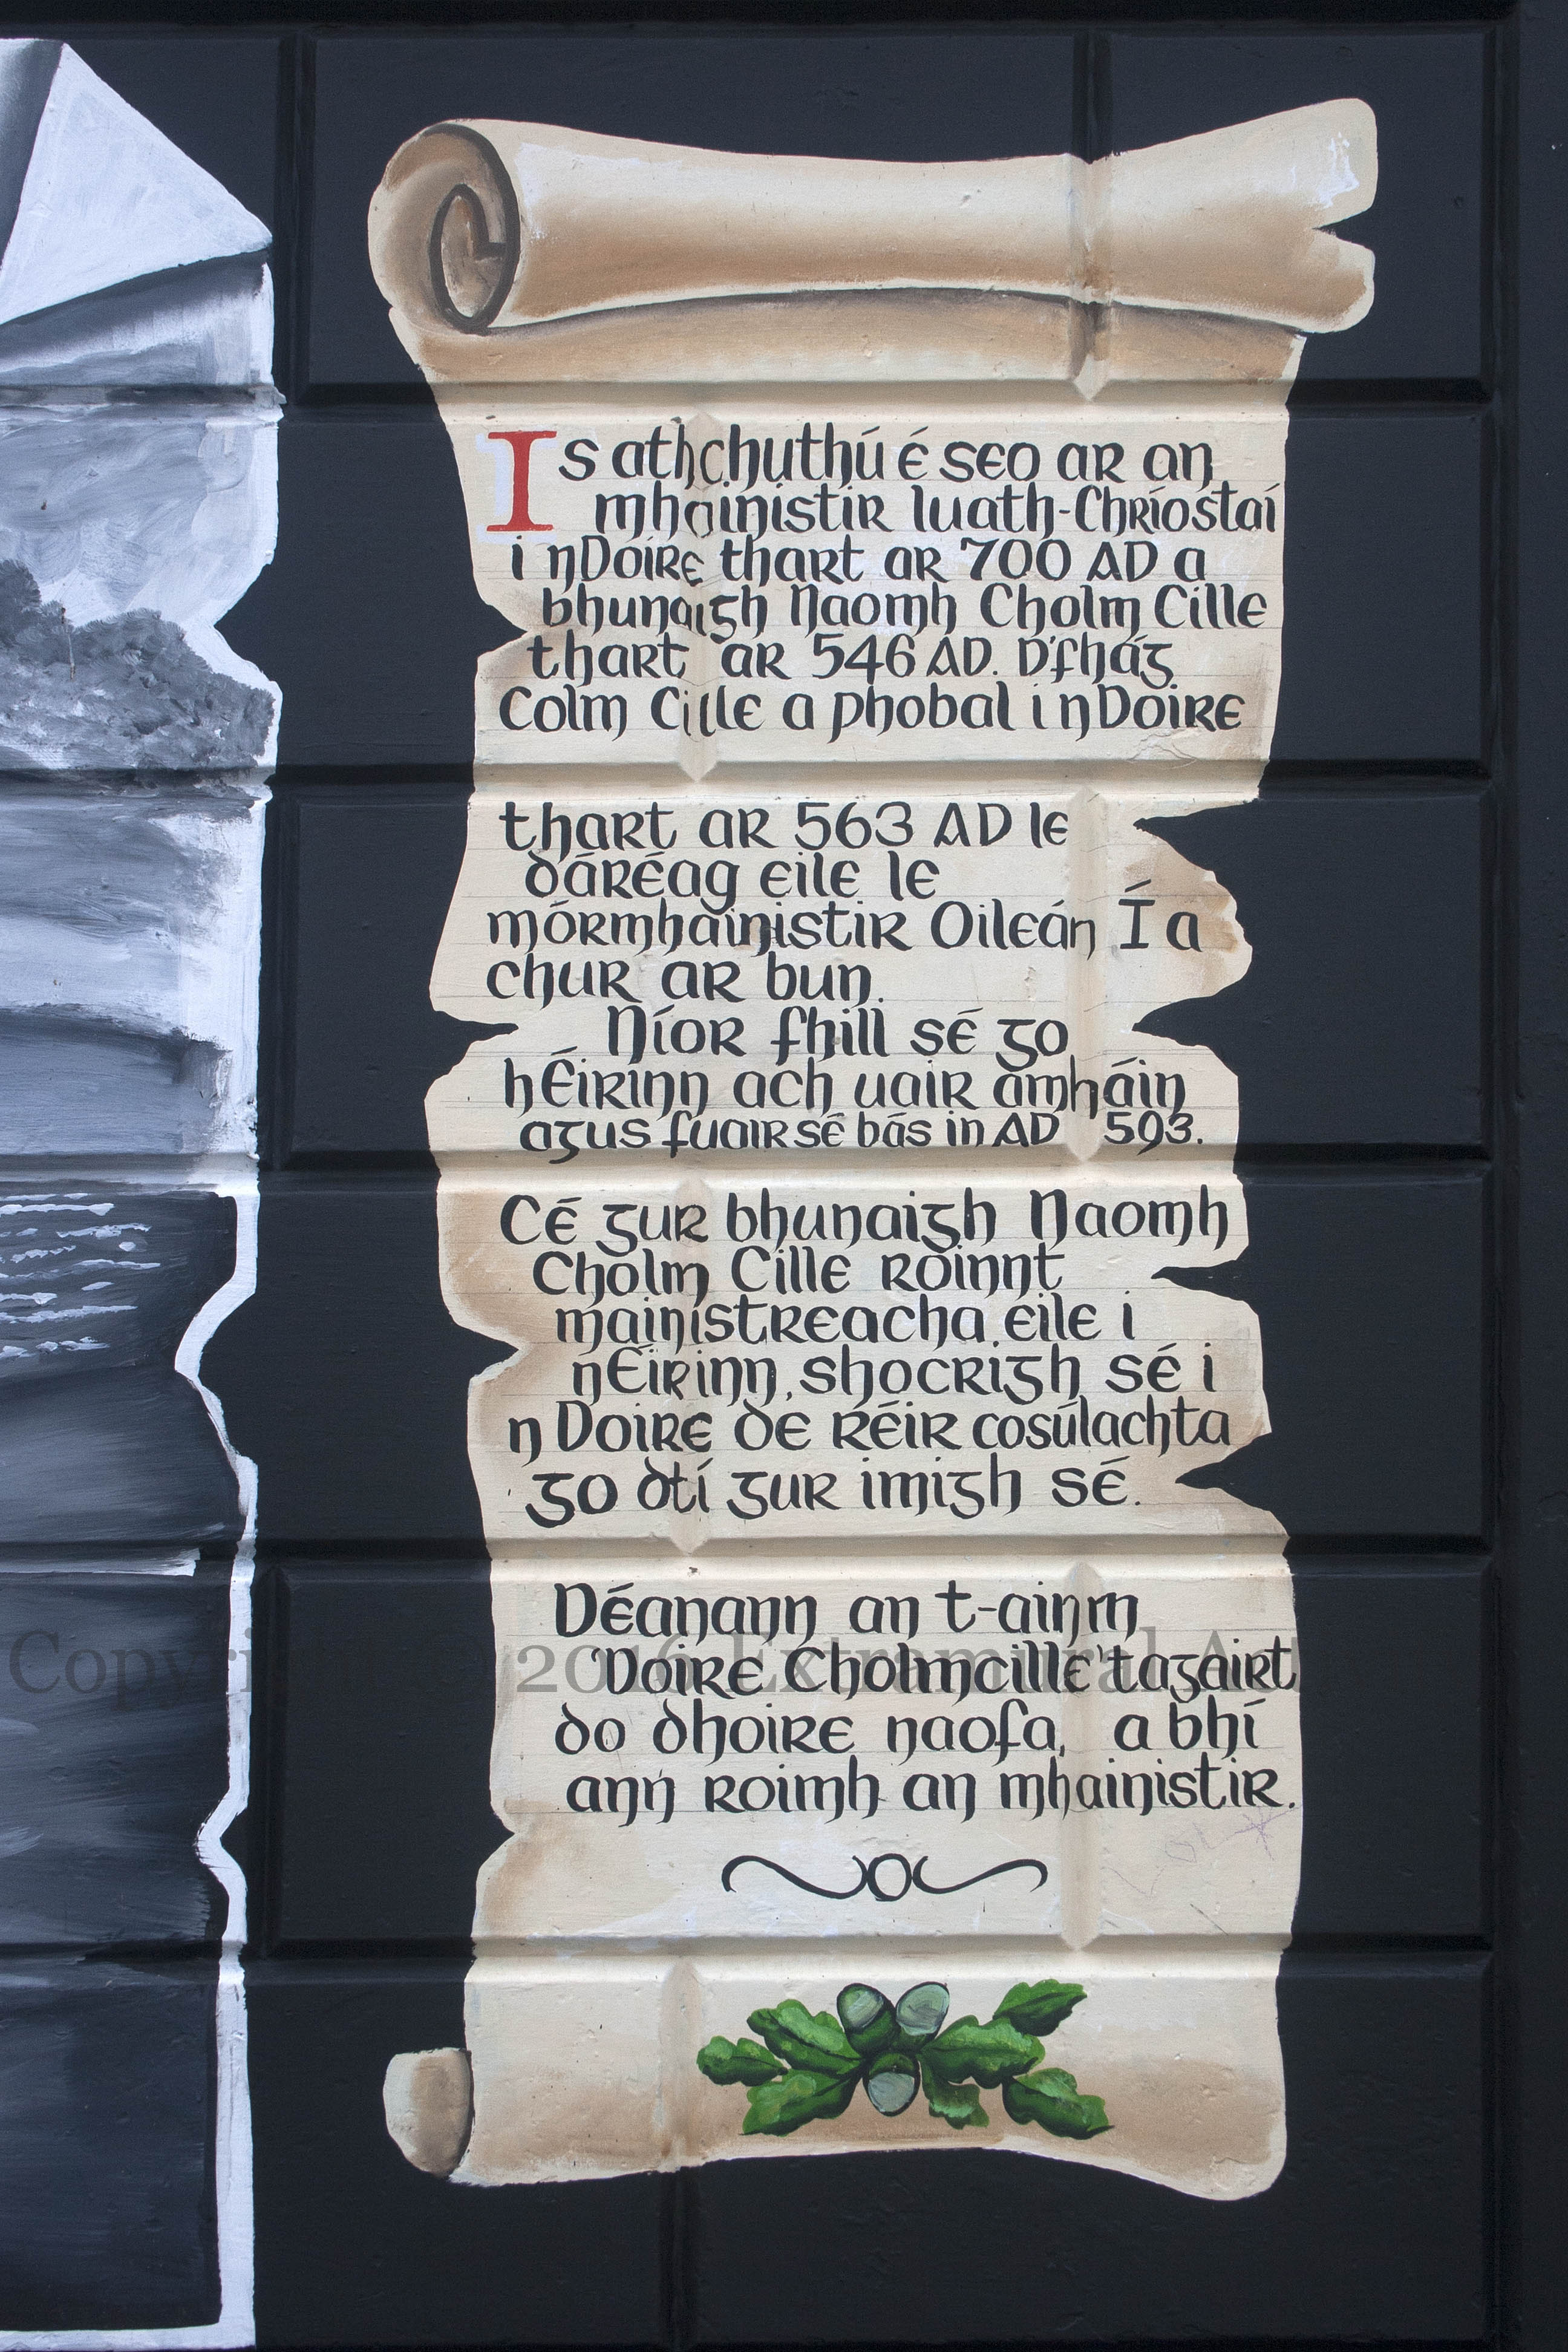 Is athchuthú é seo ar an
mhainistir luath-Chríostaí
i nDoire thart ar 700 AD a
bhunaigh Naomh Cholm Cille
thart ar 546 AD. D'fhág
Colm Cille a phobal i nDoire
thart ar 563 AD le
dáréag eile le
mórmhainistir Oileán Í a
chur ar bun.
Níor fhill sé go
hÉirinn ach uair amháin
agus fuair sé bás in AD 593.
Cé gur bhunaigh Naomh
Cholm Cille roinnt
mainistreacha eile i
nÉirinn, shocrigh sé i
nDoire de réir cosúlachta
go dtí gur imigh sé.
Déanann an t-ainm
'Doire Cholmcille' tagairt
do dhoire naofa, a bhí
ann roimh an mhainistir.
Copyright 2016 Extramural Art